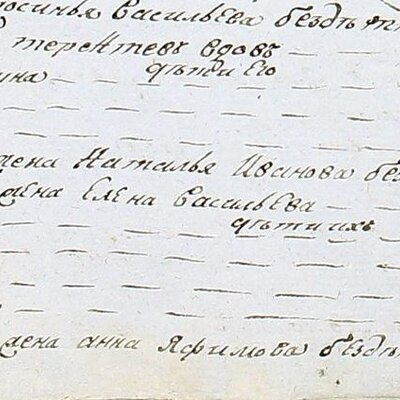 росинья васильева бездѣт
терентевъ вдовъ
дѣти Его
ина
жена Наталья Иванова без
жена Елена васильева
дѣти ихъ
жена анна Яфимова бездѣ